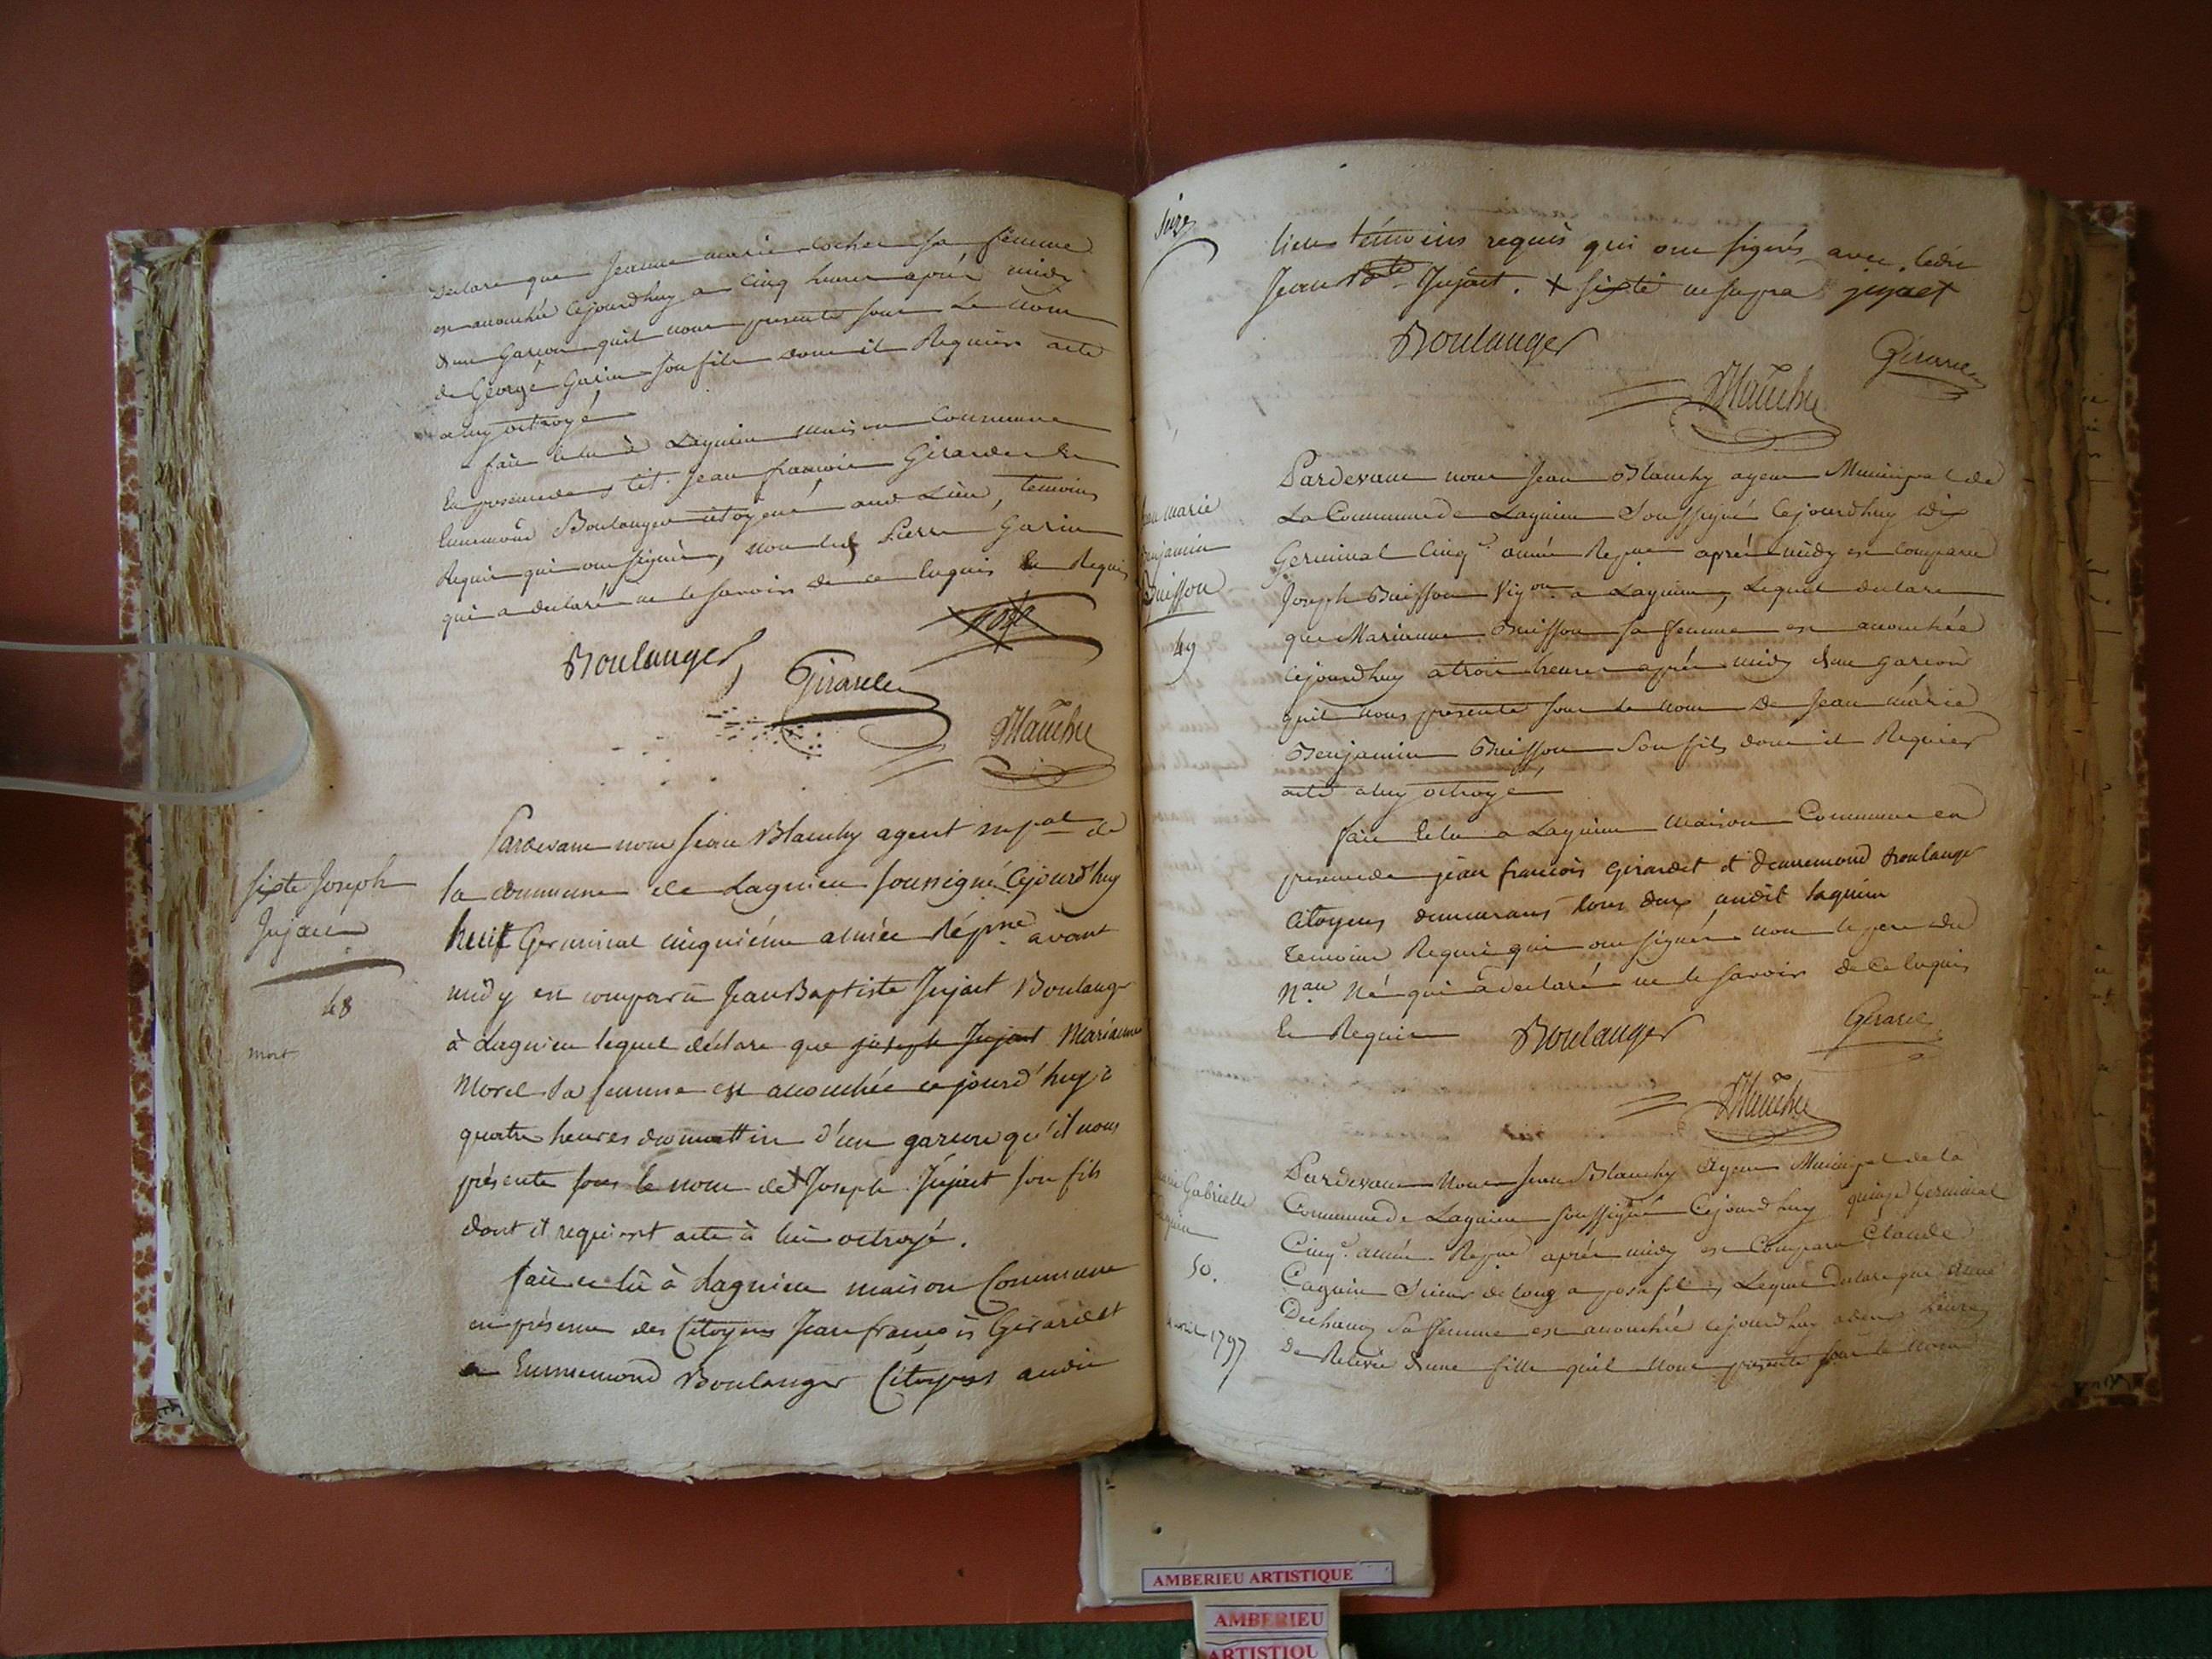 Declare que Jeanne marie cocher sa femme
est accouchée cejourdhuy a cinq heures après midy
d'un garçon quil nous presente sous le nom
de George Garin son fils dont il Requiers acte
a luy octroyé
fait et lu à Lagnieu maison Commune
En presence des cit. Jean françois Girardet Et
Ennemond Boulanger citoyens aud Lieu, temoins
Requis qui ont signés, non led Pierre Garin
qui a declaré ne le savoir de ce Enquis Et Requis
Boulanger
Girardet
Blanchy
Sixte Joseph
Jujat
48
mort
Pardevant nous Jean Blanchy agent mpal de
la commune de Lagnieu soussigné Cejourdhuy
huit Germinal cinquième année Répne avant
midy est comparu Jean Baptiste Jujat Boulanger
à Lagnieu lequel déclare que joseph Jujat Marianne
Morel sa femme est accouchée cejourd'huy à
quatre heures du mattin d'un garcon qu'il nous
présente sous le nom de + Joseph Jujat son fils
dont il requiert acte à lui octroyé.
fait et lû à Lagnieu maison Commune
en présence des Citoyens Jean françois Girardet
et Ennemond Boulanger Citoyens audit
Lieu témoins requis qui ont signés avec ledit
Jean Bte Jujat. + Sixte ut supra jujaet
Boulanger
Girardet
Blanchy
Jean marie
Benjamin
Buisson
49
Pardevant nous Jean Blanchy agent Municipal de
La Commune de Lagnieu Soussigné Cejourdhuy dix
Germinal Cinqe année Repne après midy est Comparu
Joseph Buisson Vigon a Lagnieu, Lequel declare
que Marianne Buisson sa femme est accouchée
Cejourdhuy a trois heures après midy d'un garcon
quil nous présente sous le nom de Jean marie
Benjamin Buisson Son fils dont il Requier
acte a luy octroyé
fait et lu a Lagnieu maison Commune en
presence de jean francois girardet et dennemond boulanger
Citoyens demeurans tous deux audit lagnieu
temoins Requis qui ont signés non le pere du
Nau Né qui a declaré ne le savoir de ce Enquis
Et Requis
Boulanger
Girardet
Blanchy
Gabrielle
50.
avril 1797
Pardevant Nous Jean Blanchy Agent Municipal de la
Commune de Lagnieu soussigné Cejourdhuy quinze Germinal
Cinqe année Repne après midy est Comparu Claude
Caquin Sieur de Long a posafol, Lequel Declare que
Duchanoz sa femme est accouchée cejourdhuy a deux heures
De Relevée d'une fille quil Nous presente sous le nom